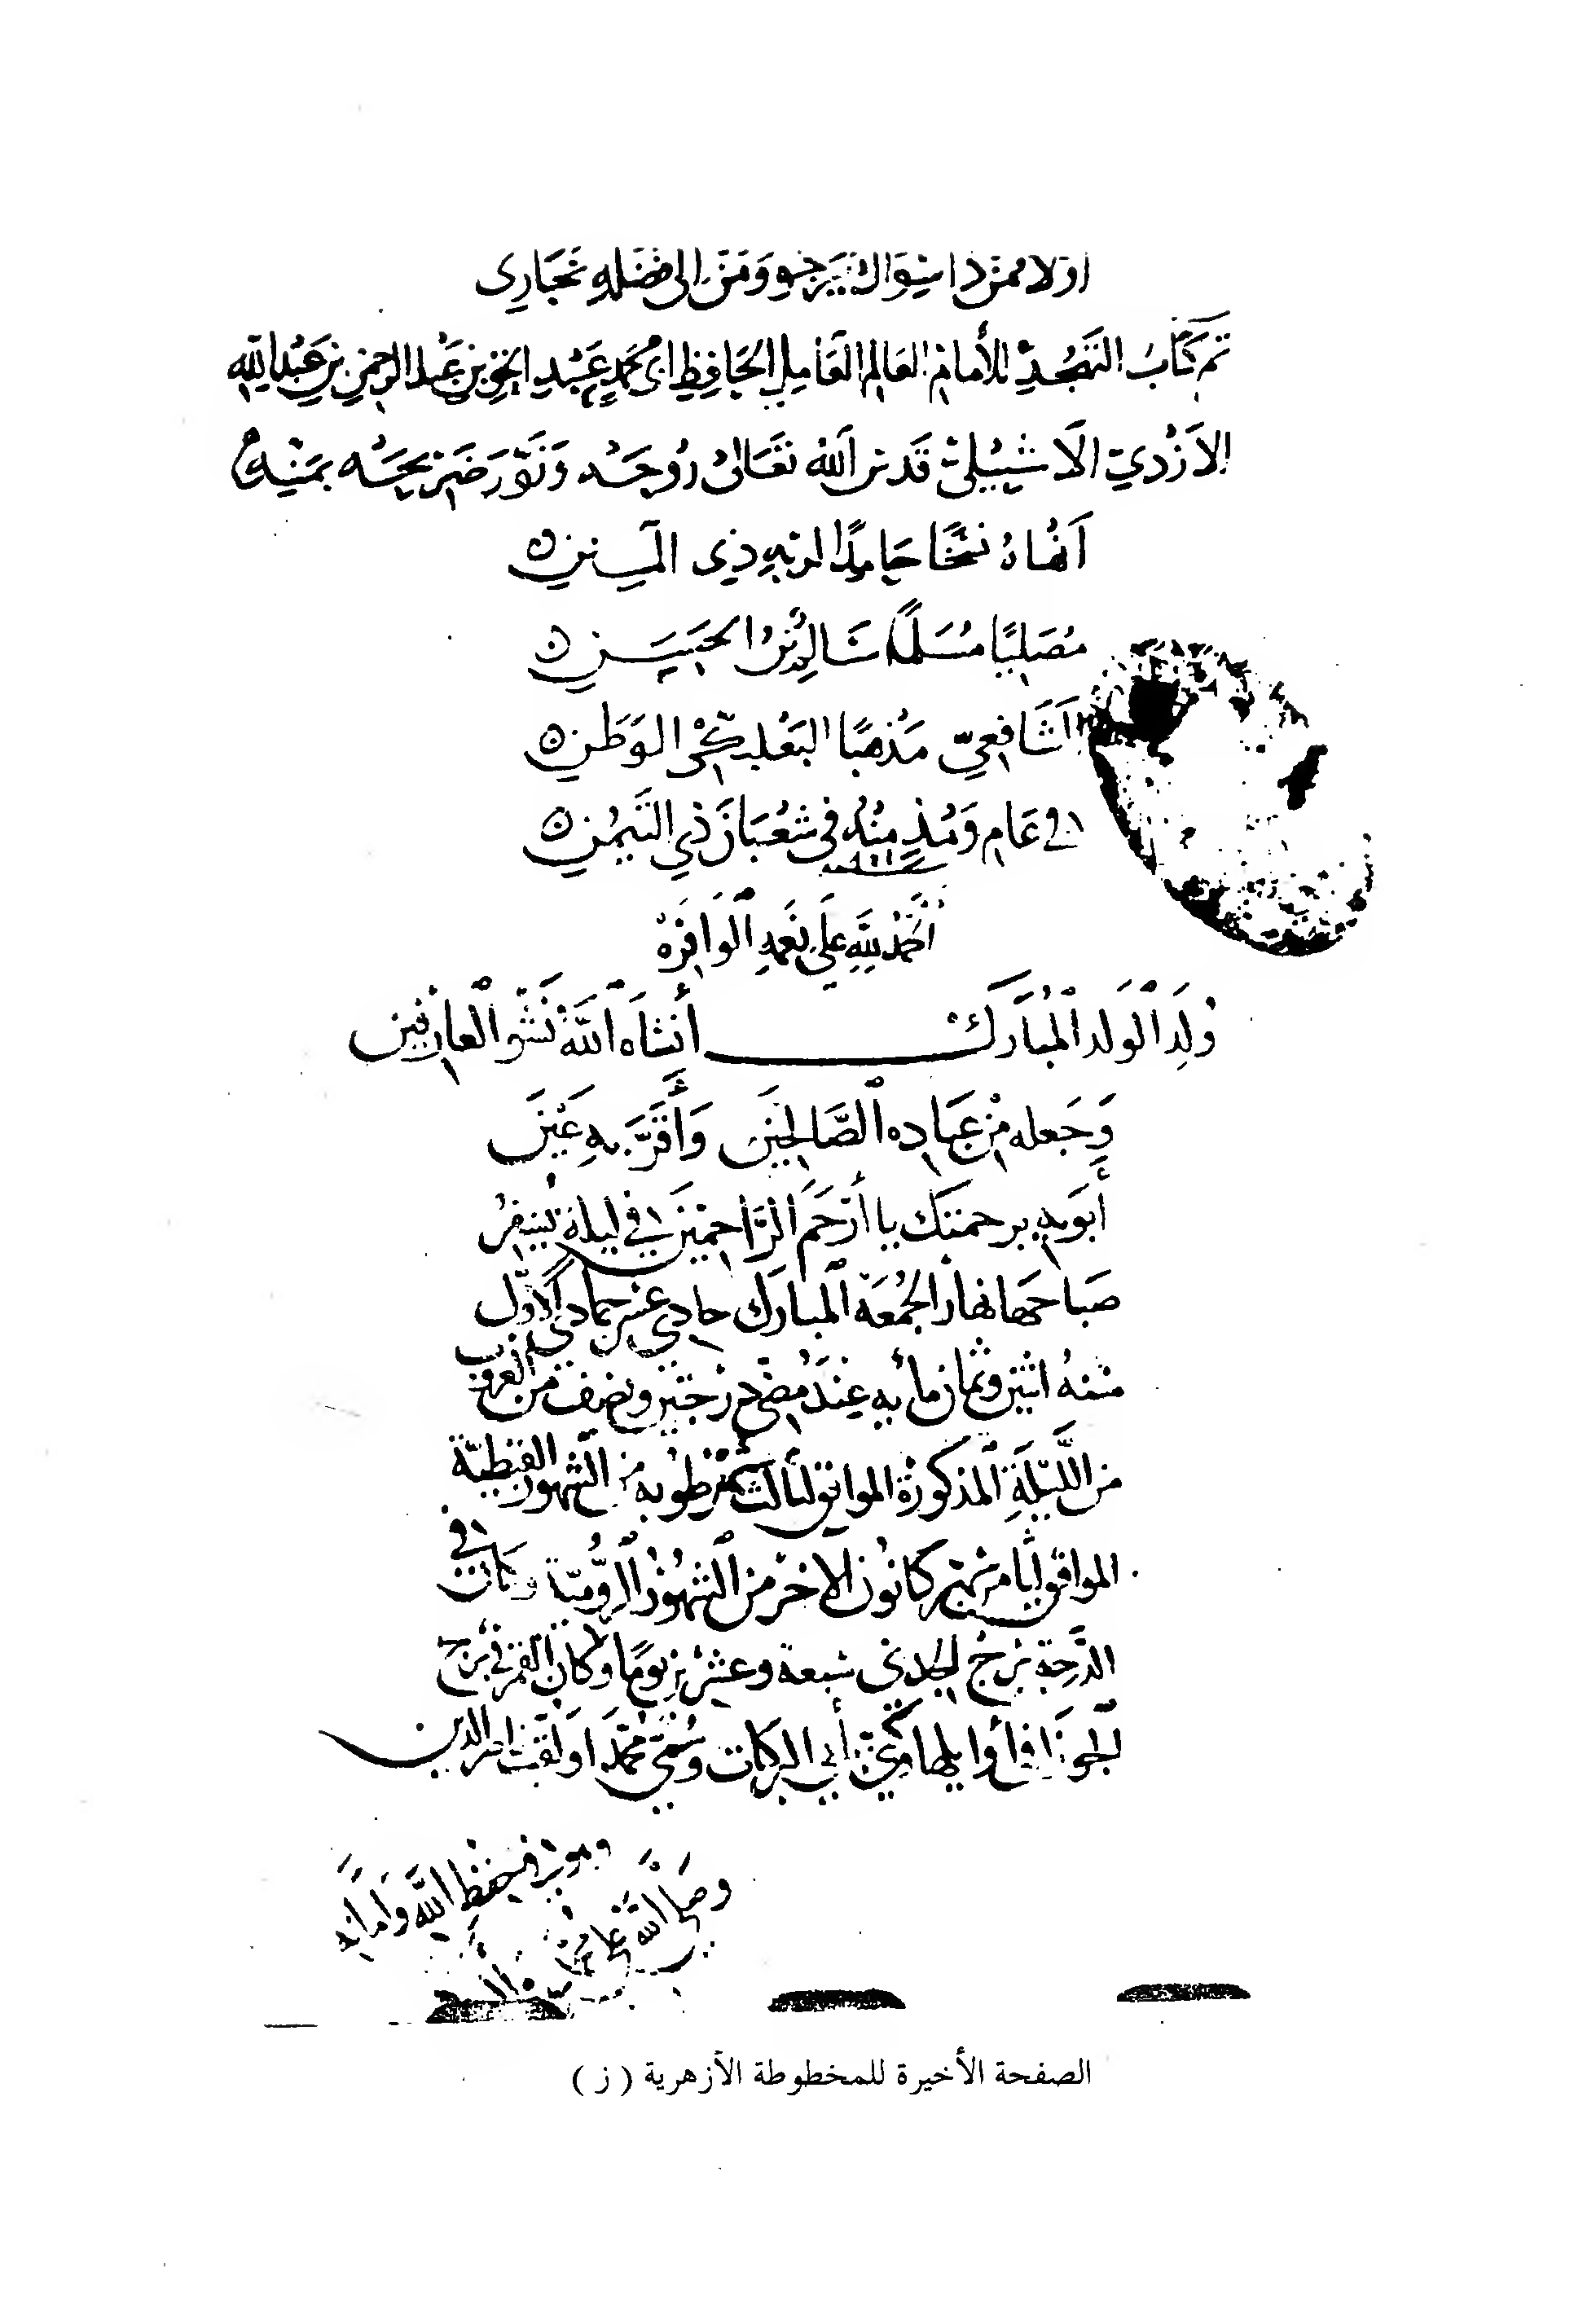 أولا ممن ذا سواك يرجو ومن إلى فضله تجاري
تم كتاب التهجد للأمام العالم العامل الحافظ ابى محمد عبد الحق بن عبد الرحمن بن عبد الله
الازدي الاشبيلى قدس الله تعالى روحه ونور ضريحه بمنه
أنهاه نسخا حامدا لربه ذي المنن
مصليا مسلما الحسن
الشافعي مذهبا البعلبكى الوطن
في عام ومذ منه فى شعبان ذي اليمن
الحمد لله على نعمه الوافرة
ولد الولد المبارك أنشاه الله نشو العارفين
وجعله من عباده الصالحين وأقر به عين
أبويه برحمتك يا أرحم الراحمين في ليلة يسفر
صباحها نهار الجمعة المبارك حادي عشر جمادى الأول
سنة اثنين وثمان مأيه عند مضي درجتين ونصف من الغروب
من الليلة المذكورة الموافق لثالث عشر طوبه من الشهور القبطية
الموافق لثامن شهر كانون الاخر من الشهور الرومية وكان في
الدرجة برج الجدى سبعة وعشرين يوما وكان القمر في برج
الجوزا في أوايلها وكني أبي البركات وسمي محمدا ولقب ناصر الدين
وهو في حفظ الله وأمانه
وصلى الله على
الصفحة الأخيرة للمخطوطة الأزهرية ( ز )